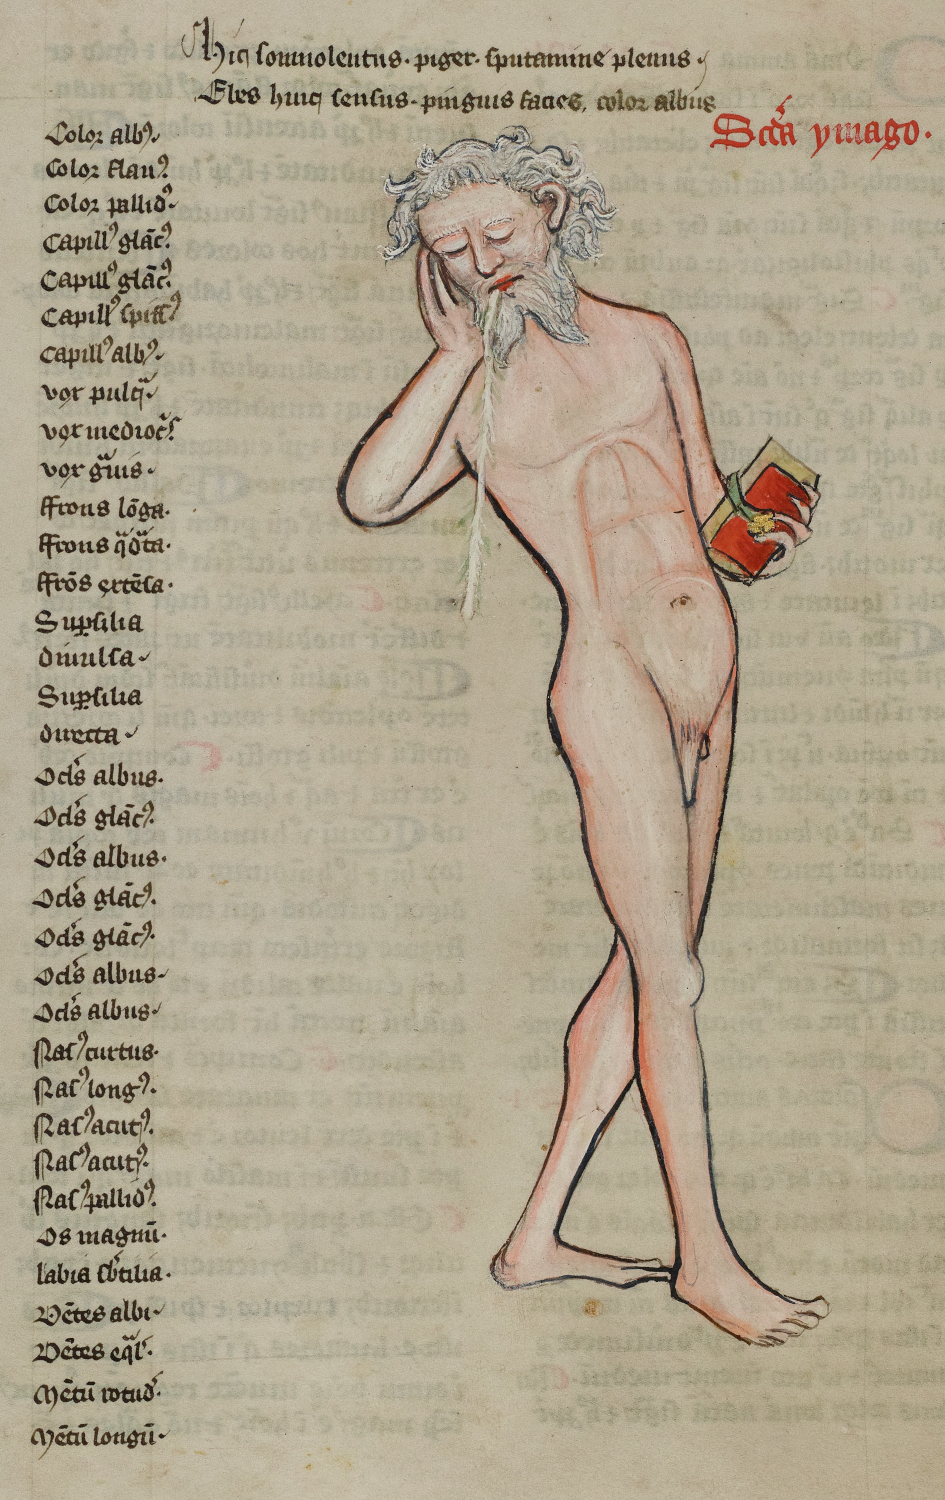 Hic somnolentus · piger · sputamine plenus ·
Ebes huic sensus · pinguis facies, color albus
Scḋa ymago ·
Color albꝰ ·
Color flauꝰ
Color pallidꝰ ·
Capillꝰ glācꝰ
Capillꝰ glācꝰ
Capillꝰ spissꝰ
Capillꝰ albꝰ ·
vox pulcᷓ
vox mediocͬ
vox gᷓuis ·
ffrons lōga ·
ffrons qᷓdᷓta ·
ffrōs extēsa ·
Suꝑsilia
diuulsa ·
Suꝑsilia
directa ·
Ocłs albus ·
Ocłs glācꝰ ·
Ocłs albus ·
Ocłs glācꝰ ·
Ocłs glācꝰ ·
Ocłs albus ·
Ocłs albus ·
Nasꝰ curtus ·
Nasꝰ longꝰ ·
Nasꝰ acutꝰ ·
Nasꝰ acutꝰ ·
Nasꝰ pallidꝰ ·
Os magnū ·
labia sb̄tilia ·
Dētes albi ·
Dētes eqᷓł ·
Mētū rotūd ·
Mētū longū ·